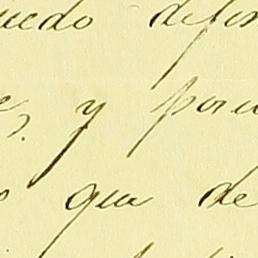 uedo defen
s, y porq
que de